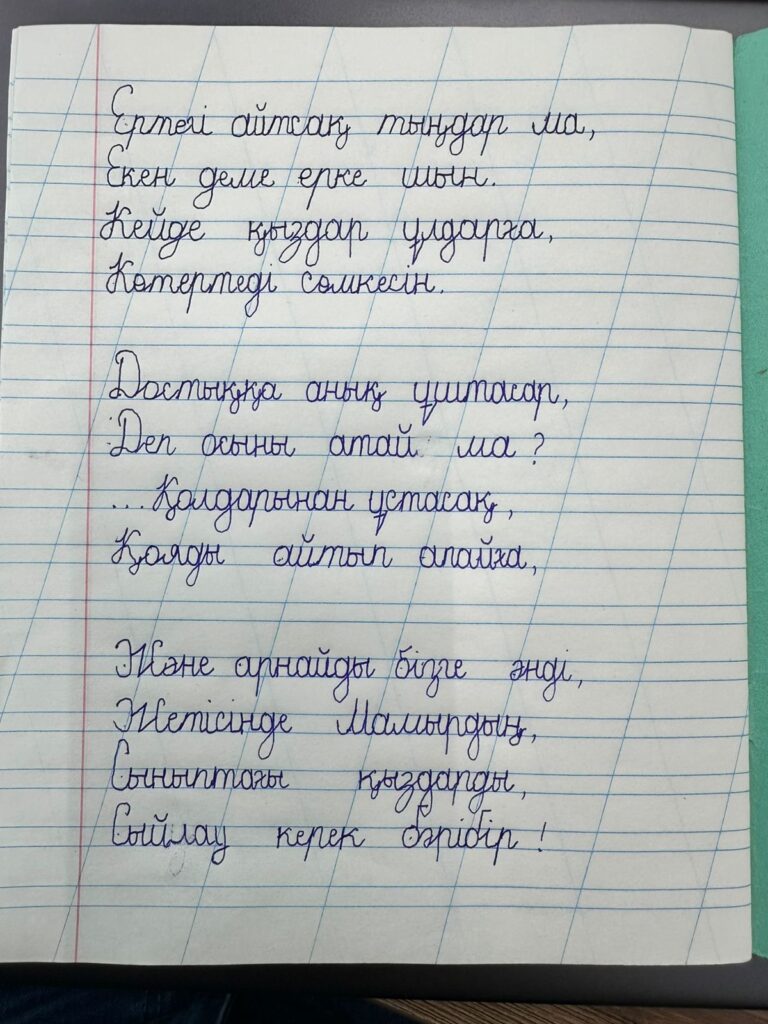 Ертегі айтсақ тыңдар ма,
Екен деме ерке шын.
Кейде қыздар ұлдарға,
Көтертеді сөмкесін.
Достыққа анық ұштасар,
Деп осыны атай ма?
...Қолдарынан ұстасақ,
Қояды айтып апайға,
Және арнайды бізге әнді,
Жетісінде Мамырдың,
Сыныптағы қыздарды,
Сыйлау керек бәрібір!